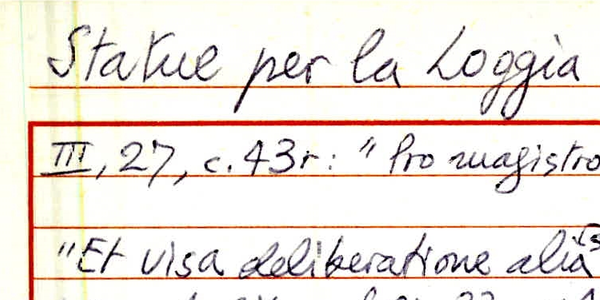 Statue per la Loggia
III, 27, c. 43r: "Pro magistro
"Et visa deliberatione alia